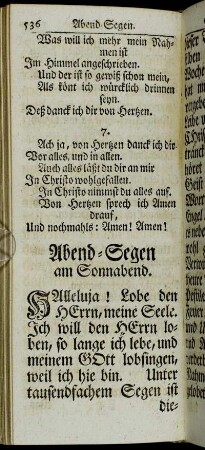 536 Abend-Segen.
Was will ich mehr mein Nah-
men ist
Im Himmel angeschrieben.
Und der ist so gewiß schon mein,
Als könt ich würcklich drinnen
seyn.
Deß danck ich dir von Hertzen.
7.
Ach ja, von Hertzen danck ich dir
Vor alles, und in allen.
Auch alles läßt du dir an mir
In Christo wohlgefallen.
In Christo nimmst du alles auf.
Von Hertzen sprech ich Amen
drauf,
Und nochmahls: Amen! Amen!
Abend-Segen
am Sonnabend.
HAlleluja! Lobe den
HErrn, meine Seele.
Ich will den HErrn lo-
ben, so lange ich lebe, und
meinem GOtt lobsingen,
weil ich hie bin. Unter
tausendfachem Segen ist
die-